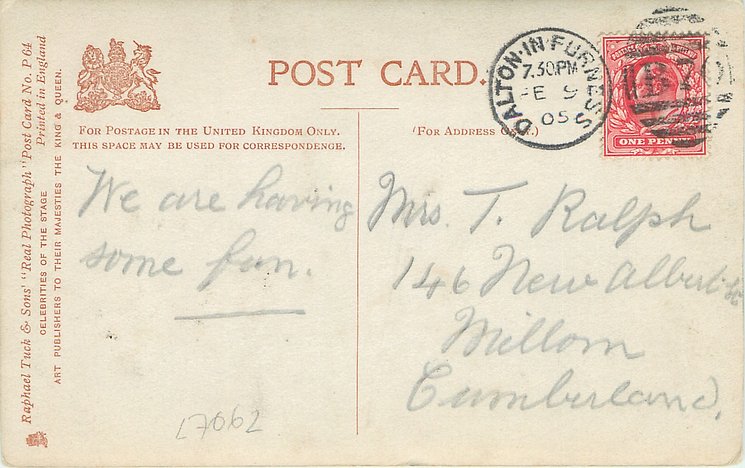 Raphael Tuck & Sons' "Real Photograph" Post Card No. P 64
CELEBRITIES OF THE STAGE
Printed in England
ART PUBLISHERS TO THEIR MAJESTIES THE KING & QUEEN.
POST CARD.
FOR POSTAGE IN THE UNITED KINGDOM ONLY.
THIS SPACE MAY BE USED FOR CORRESPONDENCE.
(FOR ADDRESS
DALTON-IN-FURNESS
7.30PM
FE 9
05
ONE PENNY
We are having
some fun.
Mrs. T. Ralph
146 New Albert St
Millom
Cumberland.
27062